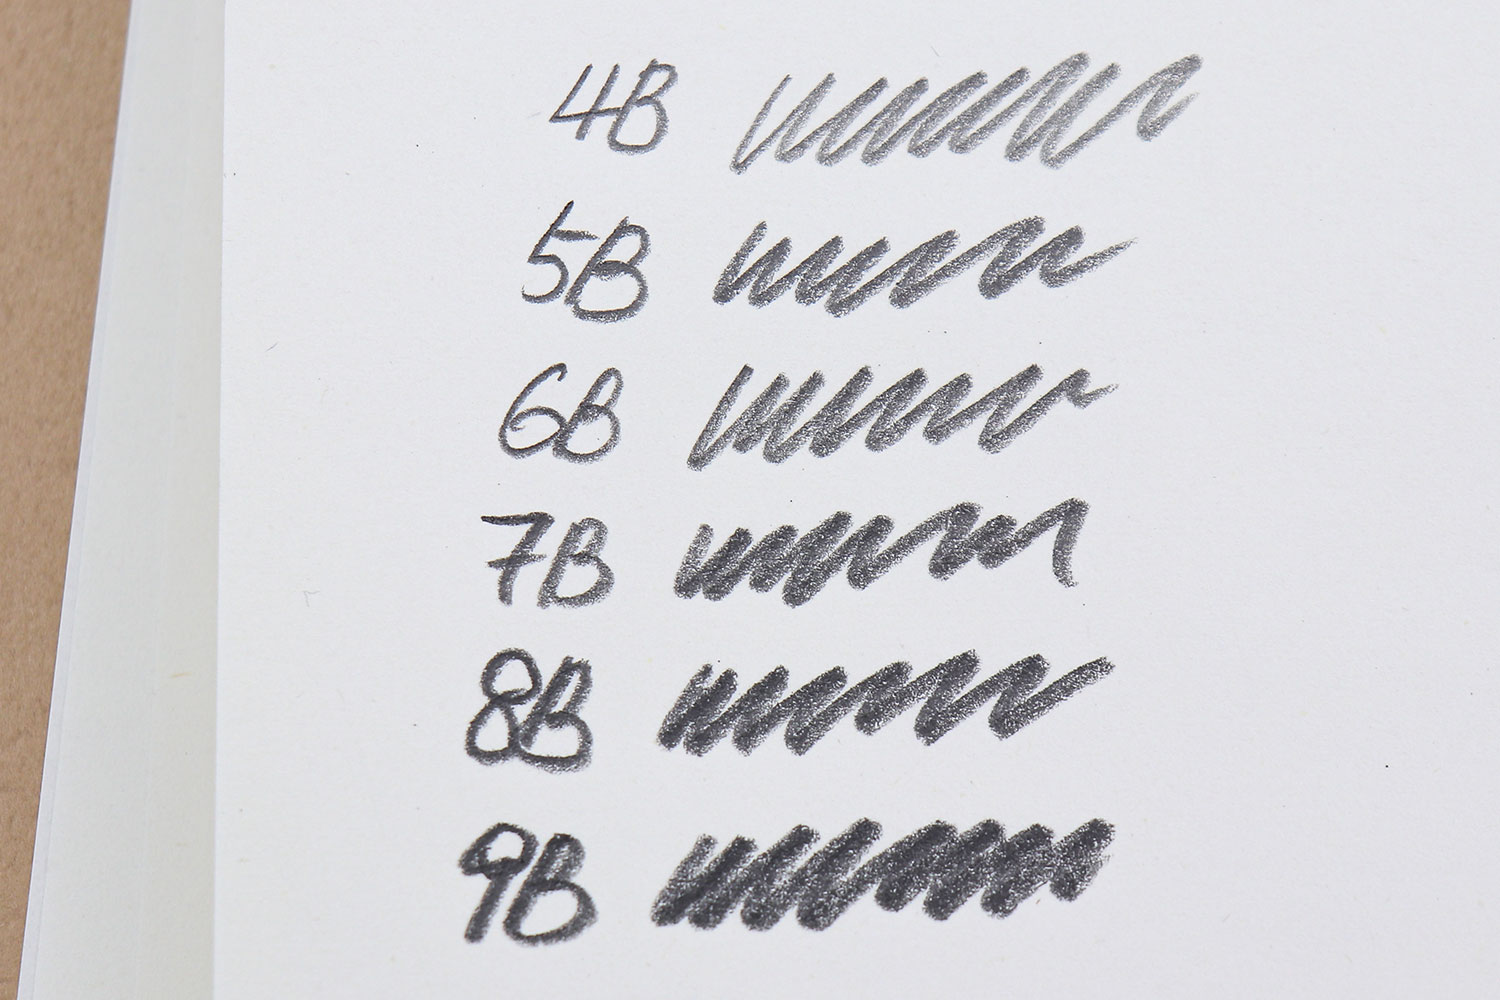 4B
5B
6B
7B
8B
9B